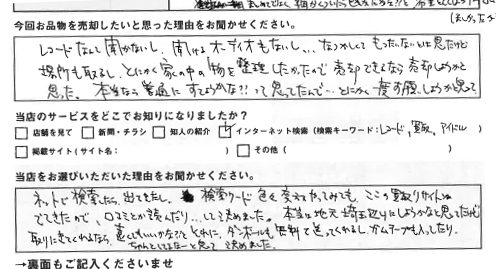 今回お品物を売却したいと思った理由をお聞かせください。
レコードなんて聞かないし、聞けるオーディオもないし、、、なつかしくてもったいないとは思ったけど
場所も取るし、とにかく家の中の物を整理したかったので売却できるなら売却しようかと
思った。本当なら普通にすてようかな?!って思ってたんで…とにかく
当店のサービスをどこでお知りになりましたか?
□店舗を見て □新聞・チラシ □知人の紹介 ☑インターネット検索 (検索キーワード:レコード,買取,アイドル )
□掲載サイト(サイト名: ) □その他( )
当店をお選びいただいた理由をお聞かせください。
ネットで検索したら、出てきたし、検索ワード色々変えてやってみても、ここの買取りサイトが
でてきたので、口コミとか読んだり...して決めました。本当は地元埼玉辺りにしようかなと思ってたけど
取りにきてくれるなら、遠くてもいいかな?!って それに、ダンボールも無料で送ってくれるし、ガムテープも入ってたり、
ちゃんとしてるなーと思って決めました。
→裏面もご記入くださいませ